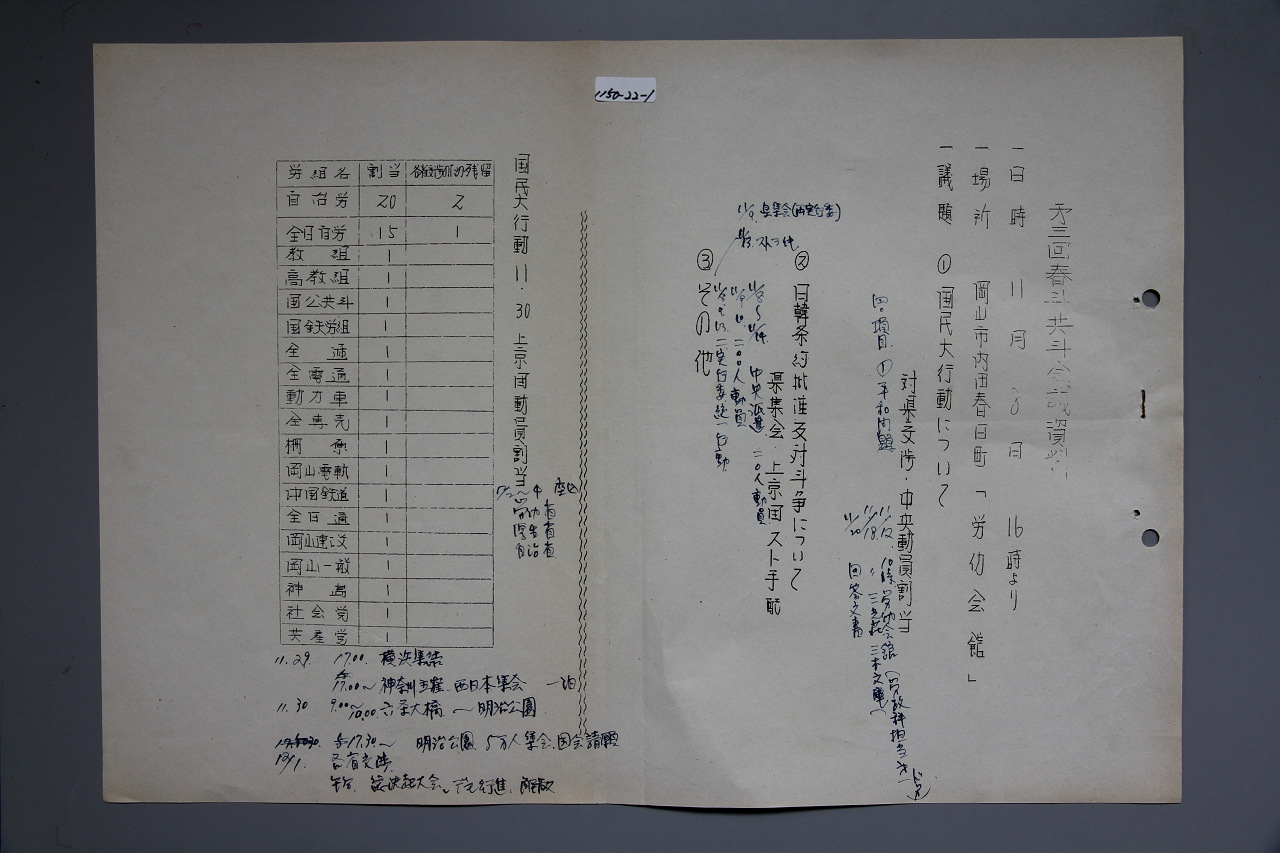 1150-22-1
第三回春斗共斗会議資料
一日時 11月8日 16時より
一場所 岡山市内田春日町「労仂会館」
一議題 ① 国民大行動について
対県交渉・中央動員割当
四項目 ①平和問題
11/12 10時 労仂会館
11/18 〃 三光荘 三木文庫
11/20 回答文書
② 日韓条約批准反対斗争について
県集会・上京団スト手配
中央派遣 二〇人動員
11/9.10. 二〇〇人動員
二実行委統一行動
③ その他
11/9. 県集会(両実行委)
11/13. ストライキ
国民大行動11.30上京団動員割当
中 座込
労仂省
厚生省
自治省
労組名 割当 の残留
自治労 20 2
全日自労 15 1
教組 1
高教組 1
国公共斗 1
国鉄労組 1
全逓 1
全電通 1
動力車 1
全専売 1
岡山電軌 1
中国鉄道 1
全日通 1
岡山一般 1
社会党 1
共産党 1
11.29. 17.00. 横浜集結
17.00〜神奈川 西日本集会 一泊
11.30 9.00〜10.00 六郷大橋 〜明治公園
后17.30〜 明治公園 5万人集会、国会請願
12/1. 各省交渉
午后 総決起大会、デモ行進、解散